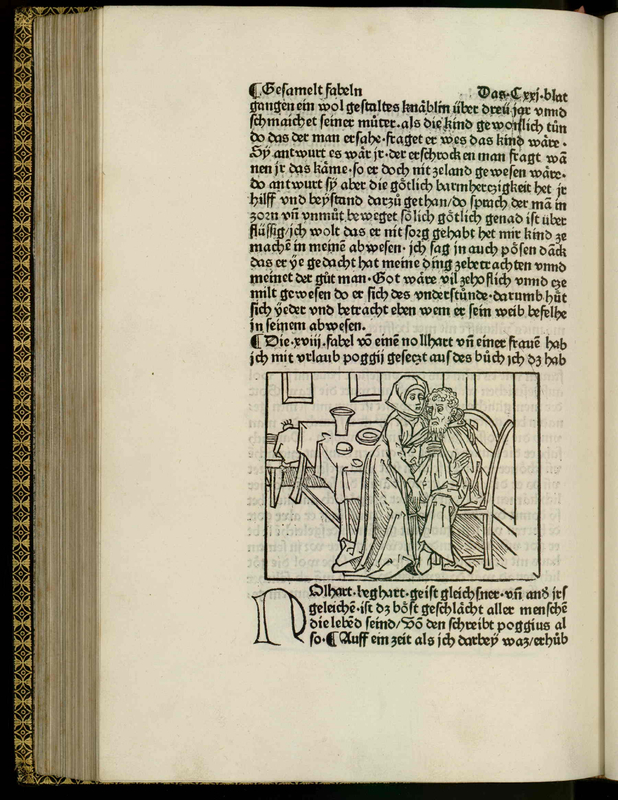 ¶ Gesamelt fabeln Das·Cxxj·blat
gangen ein wol gestaltes knåblin über dreü jar vnnd
schmaichet seiner můter. als die kind gewonlich tůn
do das der man ersahe·fraget er wes das kind wåre·
Sÿ antwurt es wår jr·der erschrocken man fragt wā
nen jr das kåme·so er doch nit zeland gewesen wåre·
do antwurt sÿ aber die gőtlich barmherczigkeit het jr
hilff vnd beÿstand darzů gethan/do sprach der mā in
zorn vn̄ vnmůt beweget sőlich gőtlich genad ist über
flüssig/ich wolt das er nit sorg gehabt het mir kind ze
machē in meinē abwesen· ich sag jn auch pősen dāck
das er ÿe gedacht hat meine ding zebetrachten vnnd
meinet der gůt man·Got wåre vil zehoflich vnnd cze
milt gewesen do er sich des vnderstůnde·darumb hůt
sich ÿeder vnd betracht eben wem er sein weib befelhe
in seinem abwesen.
¶ Die·xviij·fabel vō einē nollhart vn̄ einer frauē hab
ich mit vrlaub poggij geseczt aus des bůch ich dz hab
NOlhart·beghart·geist gleichsner·vn̄ and̄ jrs
geleichē·ist dz bőst geschlåcht aller menschē
die lebēd seind/Vō den schreibt poggius al
so·¶ Auff ein zeit als ich darbeÿ waz/erhůb